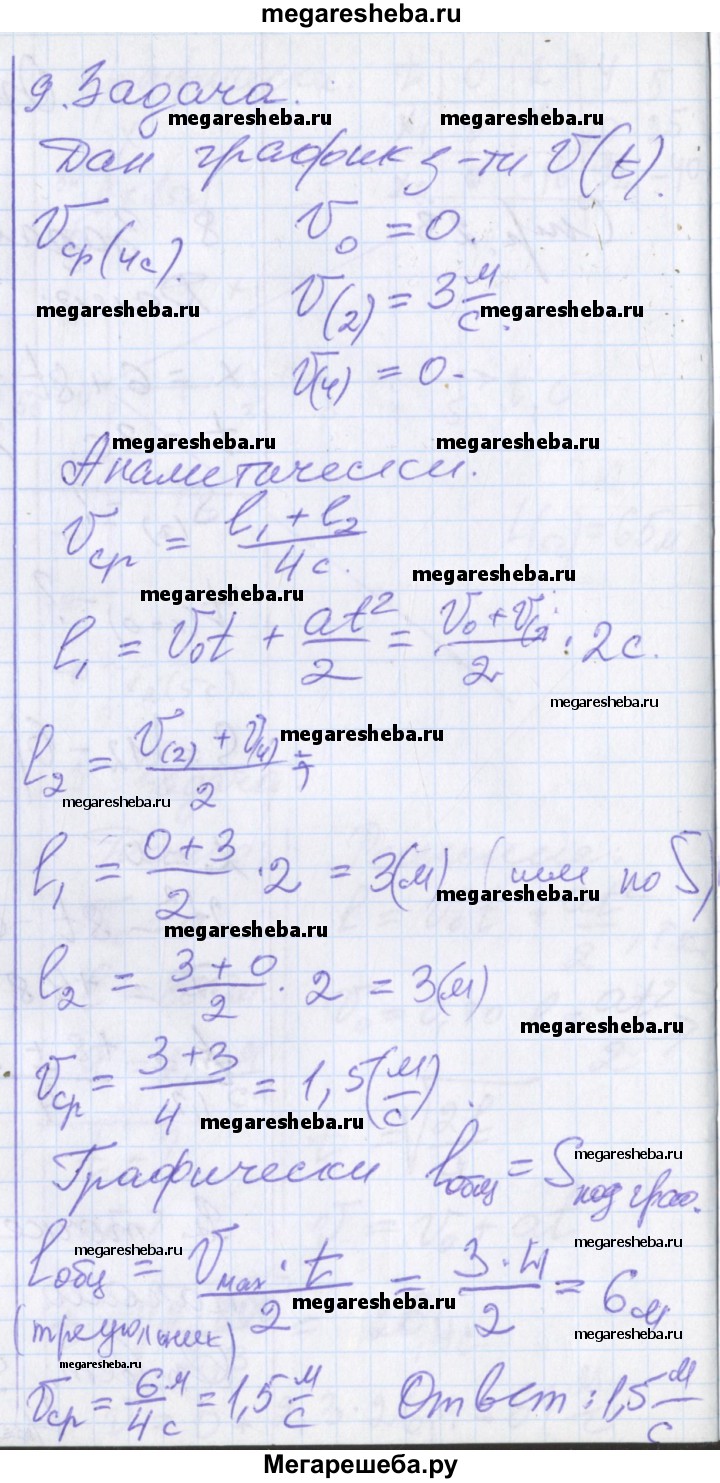 megaresheba.ru
9. Задача.
megaresheba.ru megaresheba.ru
Дан график з-ти V(t).
Vср(4с). V₀ = 0.
V(2) = 3 м/с.
megaresheba.ru megaresheba.ru
V(4) = 0.
megaresheba.ru megaresheba.ru
Аналитически.
Vср = (l₁ + l₂)/4с.
megaresheba.ru megaresheba.ru
l₁ = V₀t + at²/2 = (V₀ + V(2))/2 · 2с.
megaresheba.ru
l₂ = (V(2) + V(4))/2 =;
megaresheba.ru
megaresheba.ru
l₁ = (0+3)/2 · 2 = 3(м) (или по S)
megaresheba.ru
megaresheba.ru
l₂ = (3+0)/2 · 2 = 3(м)
megaresheba.ru
Vср = (3+3)/4 = 1,5(м/с).
megaresheba.ru
Графически lобщ = Sпод граф.
megaresheba.ru
megaresheba.ru
megaresheba.ru
lобщ = (Vmax · t)/2 = (3 · 4)/2 = 6м
megaresheba.ru
(треугольник)
megaresheba.ru
megaresheba.ru
Vср = 6м/4с = 1,5 м/с Ответ: 1,5 м/с
Мегарешеба.ру